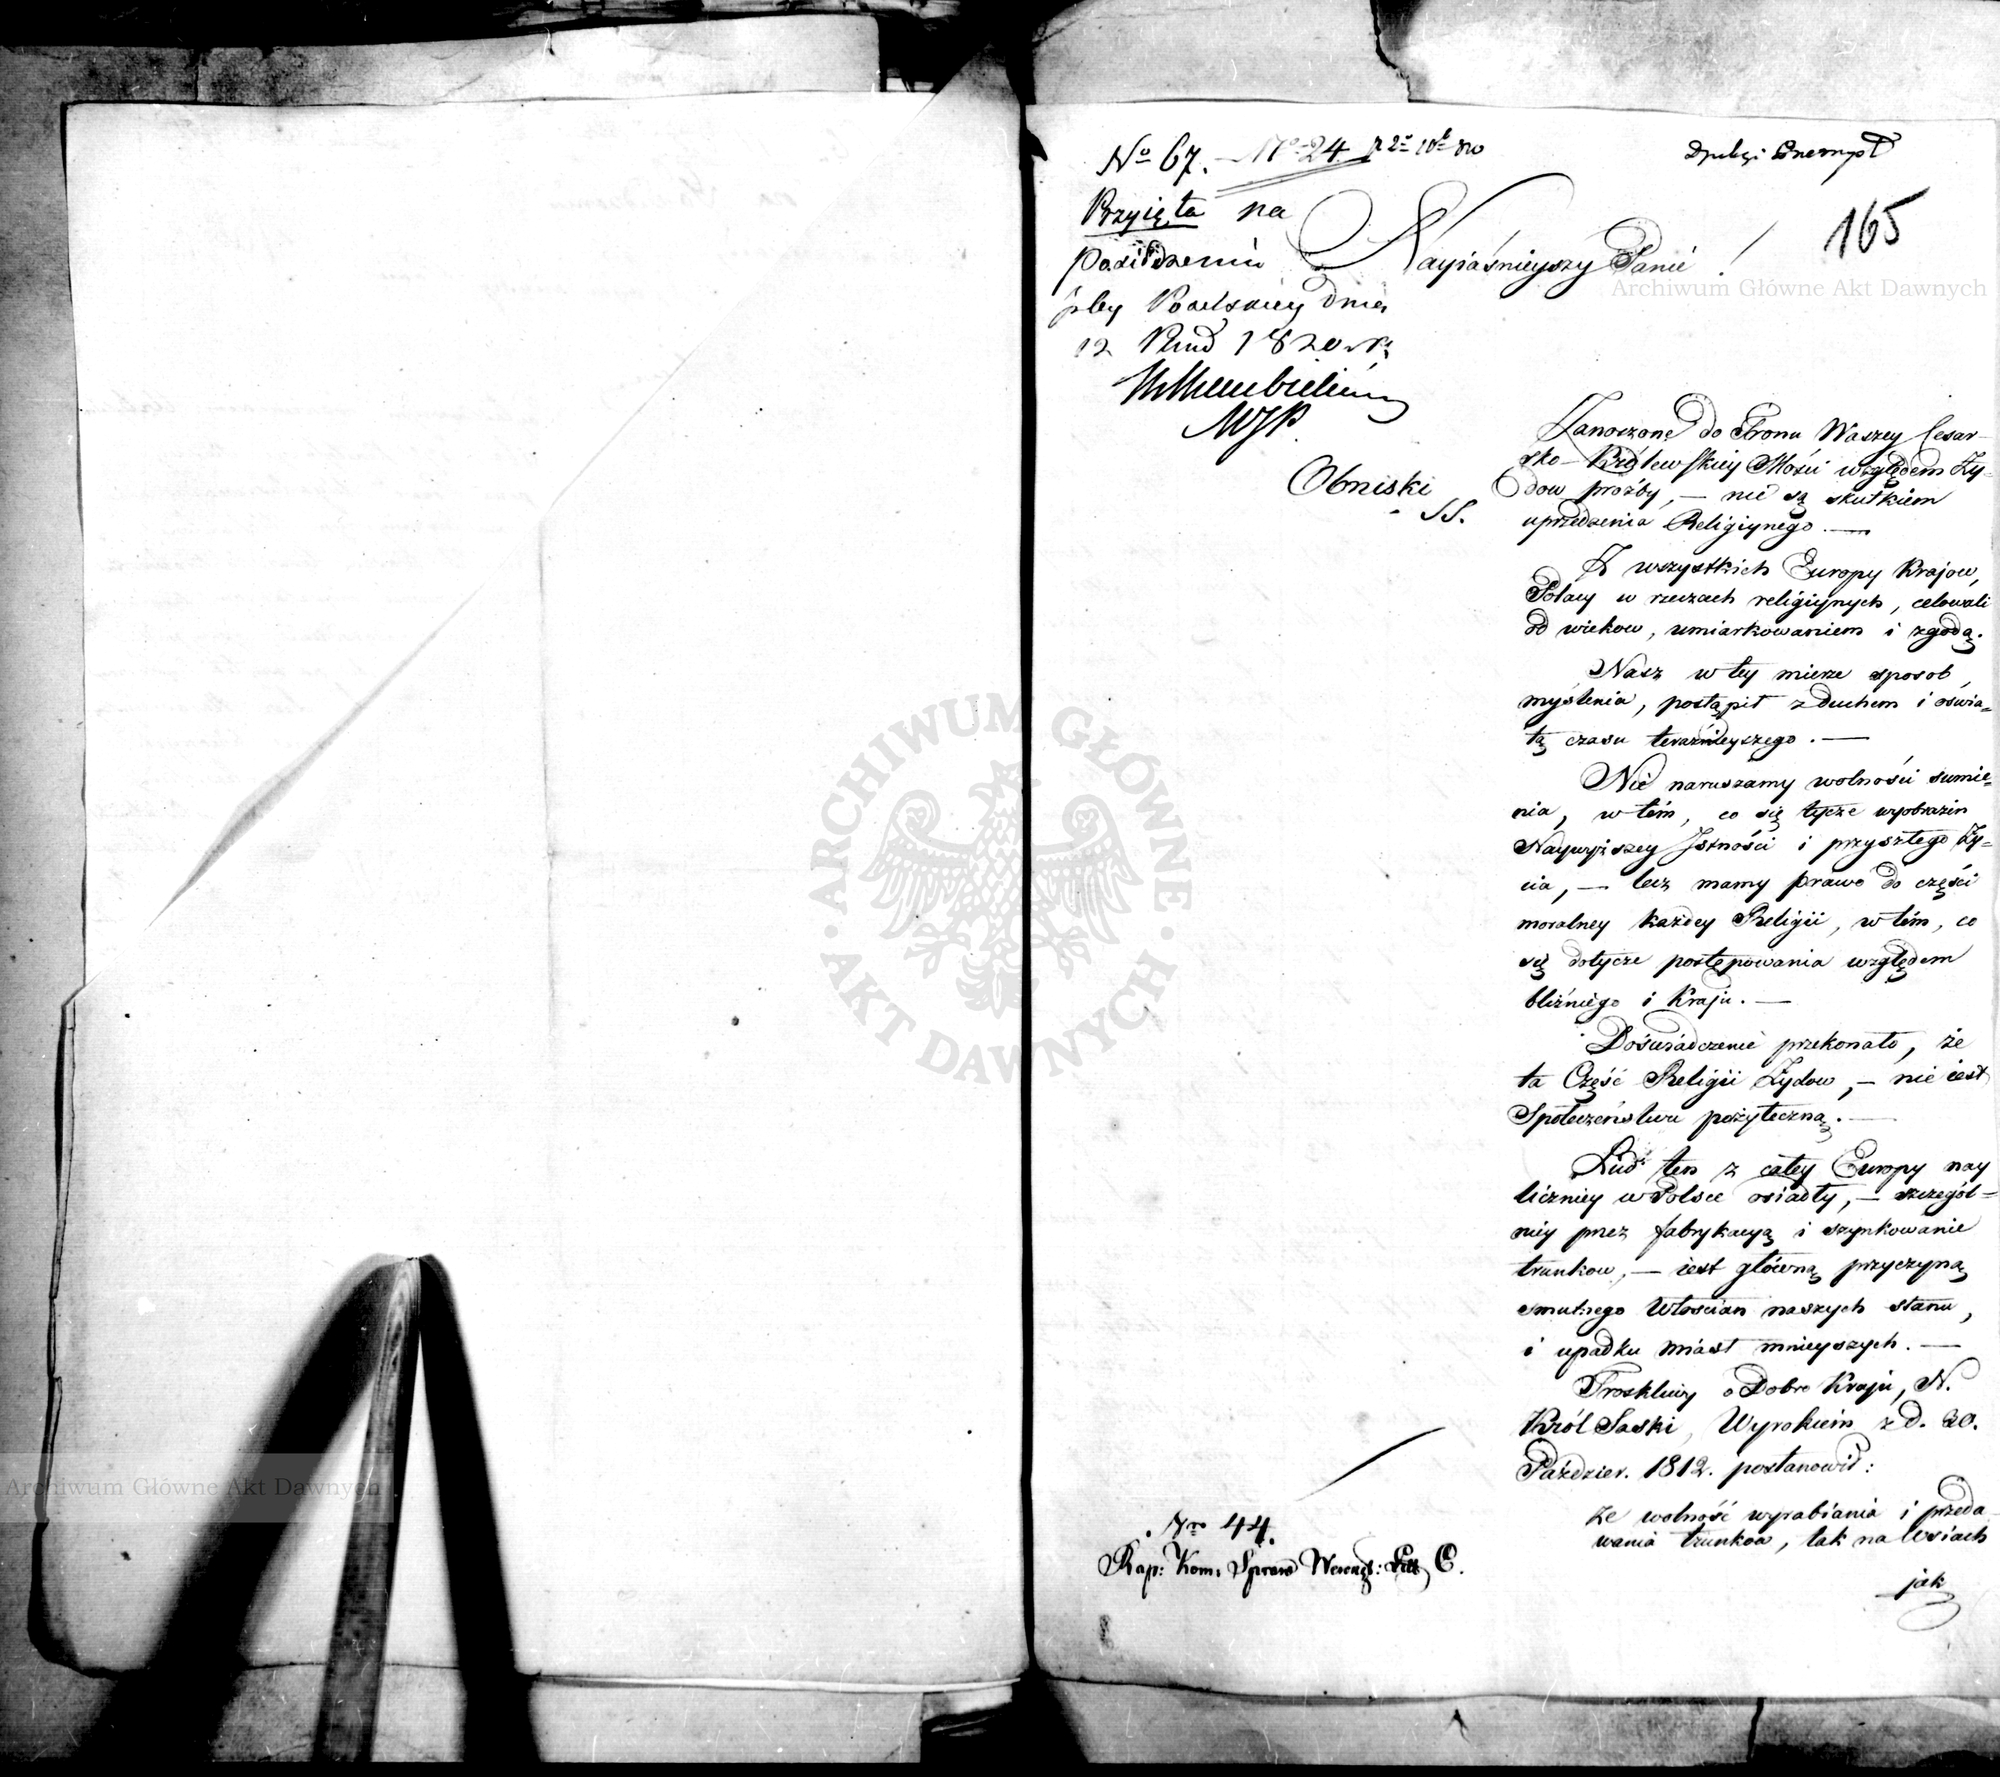 No 67. No 24
165
Przyięta na
Posiedzeniu
Jzby Poselskiey Dnia
12 1820 r.
WJP.
Obniski
SS.
Nayiaśnieyszy Panie !
Archiwum Główne Akt Dawnych
Zanoszone do Tronu Waszey Cesar-
sko-Królewskiey Mości względem Ży-
dow prożby, — nie są skutkiem
uprzedzenia Religiynego. —
Z wszystkich Europy Kraiow,
Polacy w rzeczach religiynych, celowali
od wiekow, umiarkowaniem i zgodą.
Nasz w tey mierze sposob
myslenia, postąpił z duchem i oświa=
tą czasu teraznieyszego. —
Nie naruszamy wolności sumie=
nia, w tém, co się tycze wyobrażen
Naywyższey Jstności i przyszłego Ży=
cia, — lecz mamy prawo do części
moralney każdey Religii, w tém, co
się dotycze postępowania względem
bliźniego i Kraju. —
Doświadczenie przekonało, że
ta Część Religii Żydow, — nie iest
Społeczeństwu pożyteczną. —
Lud ten z całey Europy nay
liczniey w Polsce osiadły, — szczegól=
niey przez fabrykacyą i szynkowanie
trunkow, — iest główną przyczyną
smutnego Włoscian naszych stanu,
i upadku miast mnieyszych. —
Troskliwy o Dobro Kraju, N.
Król Saski, Wyrokiem z d. 30.
Paździer. 1812. postanowił:
że wolność wyrabiania i przeda-
wania trunkow, tak na Wsiach
jak
Nro 44.
Rap: Kom: Spraw Wewnęt: Litt C.
ARCHIWUM GŁÓWNE · AKT DAWNYCH ·
Archiwum Główne Akt Dawnych